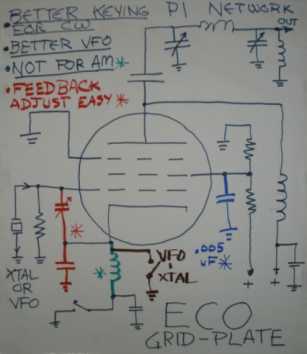 BETTER KEYING
FOR CW
PI NETWORK
OUT
• BETTER VFO
• NOT FOR AM *
• FEEDBACK
ADJUST EASY *
*
*
VFO
&
XTAL
.005
uF *
XTAL
OR
VFO
+
+
ECO
GRID-PLATE